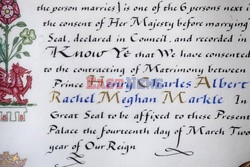 the person marries) is one of the 6 persons next i
the consent of Her Majesty before marrying
Seal, declared in Council, and recorded in
Know Ye that We have consented
to the contracting of Matrimony between
Prince Henry Charles Albert
Rachel Meghan Markle. In
Great Seal to be affixed to these Presen
Palace the fourteenth day of March Two
year of Our Reign